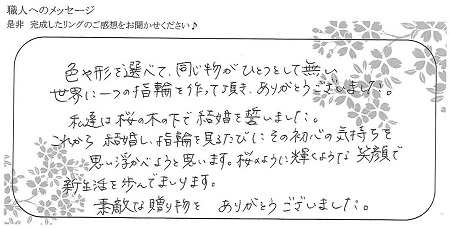 職人へのメッセージ
是非 完成したリングのご感想をお聞かせください♪
色や形を選べて、同じ物がひとつとして無い
世界に一つの指輪を作って頂き、ありがとうございました。
私達は桜の木の下で結婚を誓いました。
これから結婚し、指輪を見るたびにその初心の気持ちを
思い浮かべようと思います。桜のように輝くような笑顔で
新生活を歩んでまいります。
素敵な贈り物を ありがとうございました。